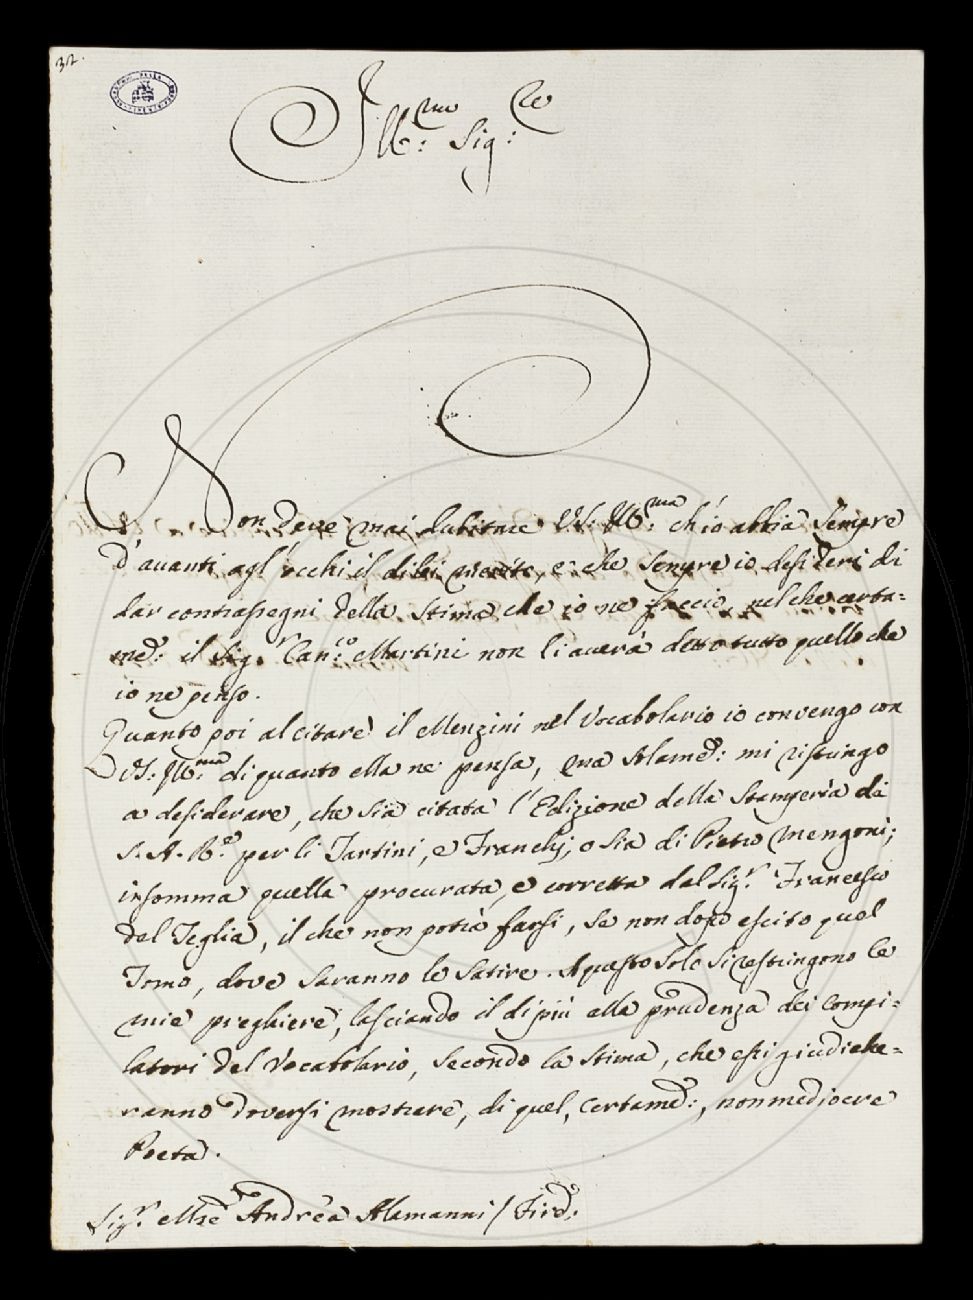 32.
Ill:mo Sig:re
Non deve mai dubitare V.S. Ill:ma ch'io abbia sempre
d'avanti agl'occhi il di lei merito, e che sempre io desideri di
dar contrassegni della stima che io ne faccio, nel che certa=
me: il Sig:r Can:co Martini non li averà detto tutto quello che
io ne penso.
Quanto poi al citare il Menzini nel Vocabolario io convengo con
VS: Ill:ma di quanto ella ne pensa, ma solame: mi ristringo
a desiderare, che sia citata l'Edizione della Stamperia di
S. A. R:e per li Tartini, e Franchj, o sia di Pietro Mengoni;
insomma quella procurata, e corretta dal Sig:r Francesco
del Teglia, il che non potrà farsi, se non dopo escito quel
Tomo, dove saranno le Satire. A questo solo si restringono le
mie preghiere, lasciando il di più alla prudenza dei compi=
latori del Vocabolario, secondo la stima, che essi giudiche=
ranno doversi mostrare, di quel, certame:, non mediocre
Poeta.
Sig:r Andrea Alamanni / Fir:e